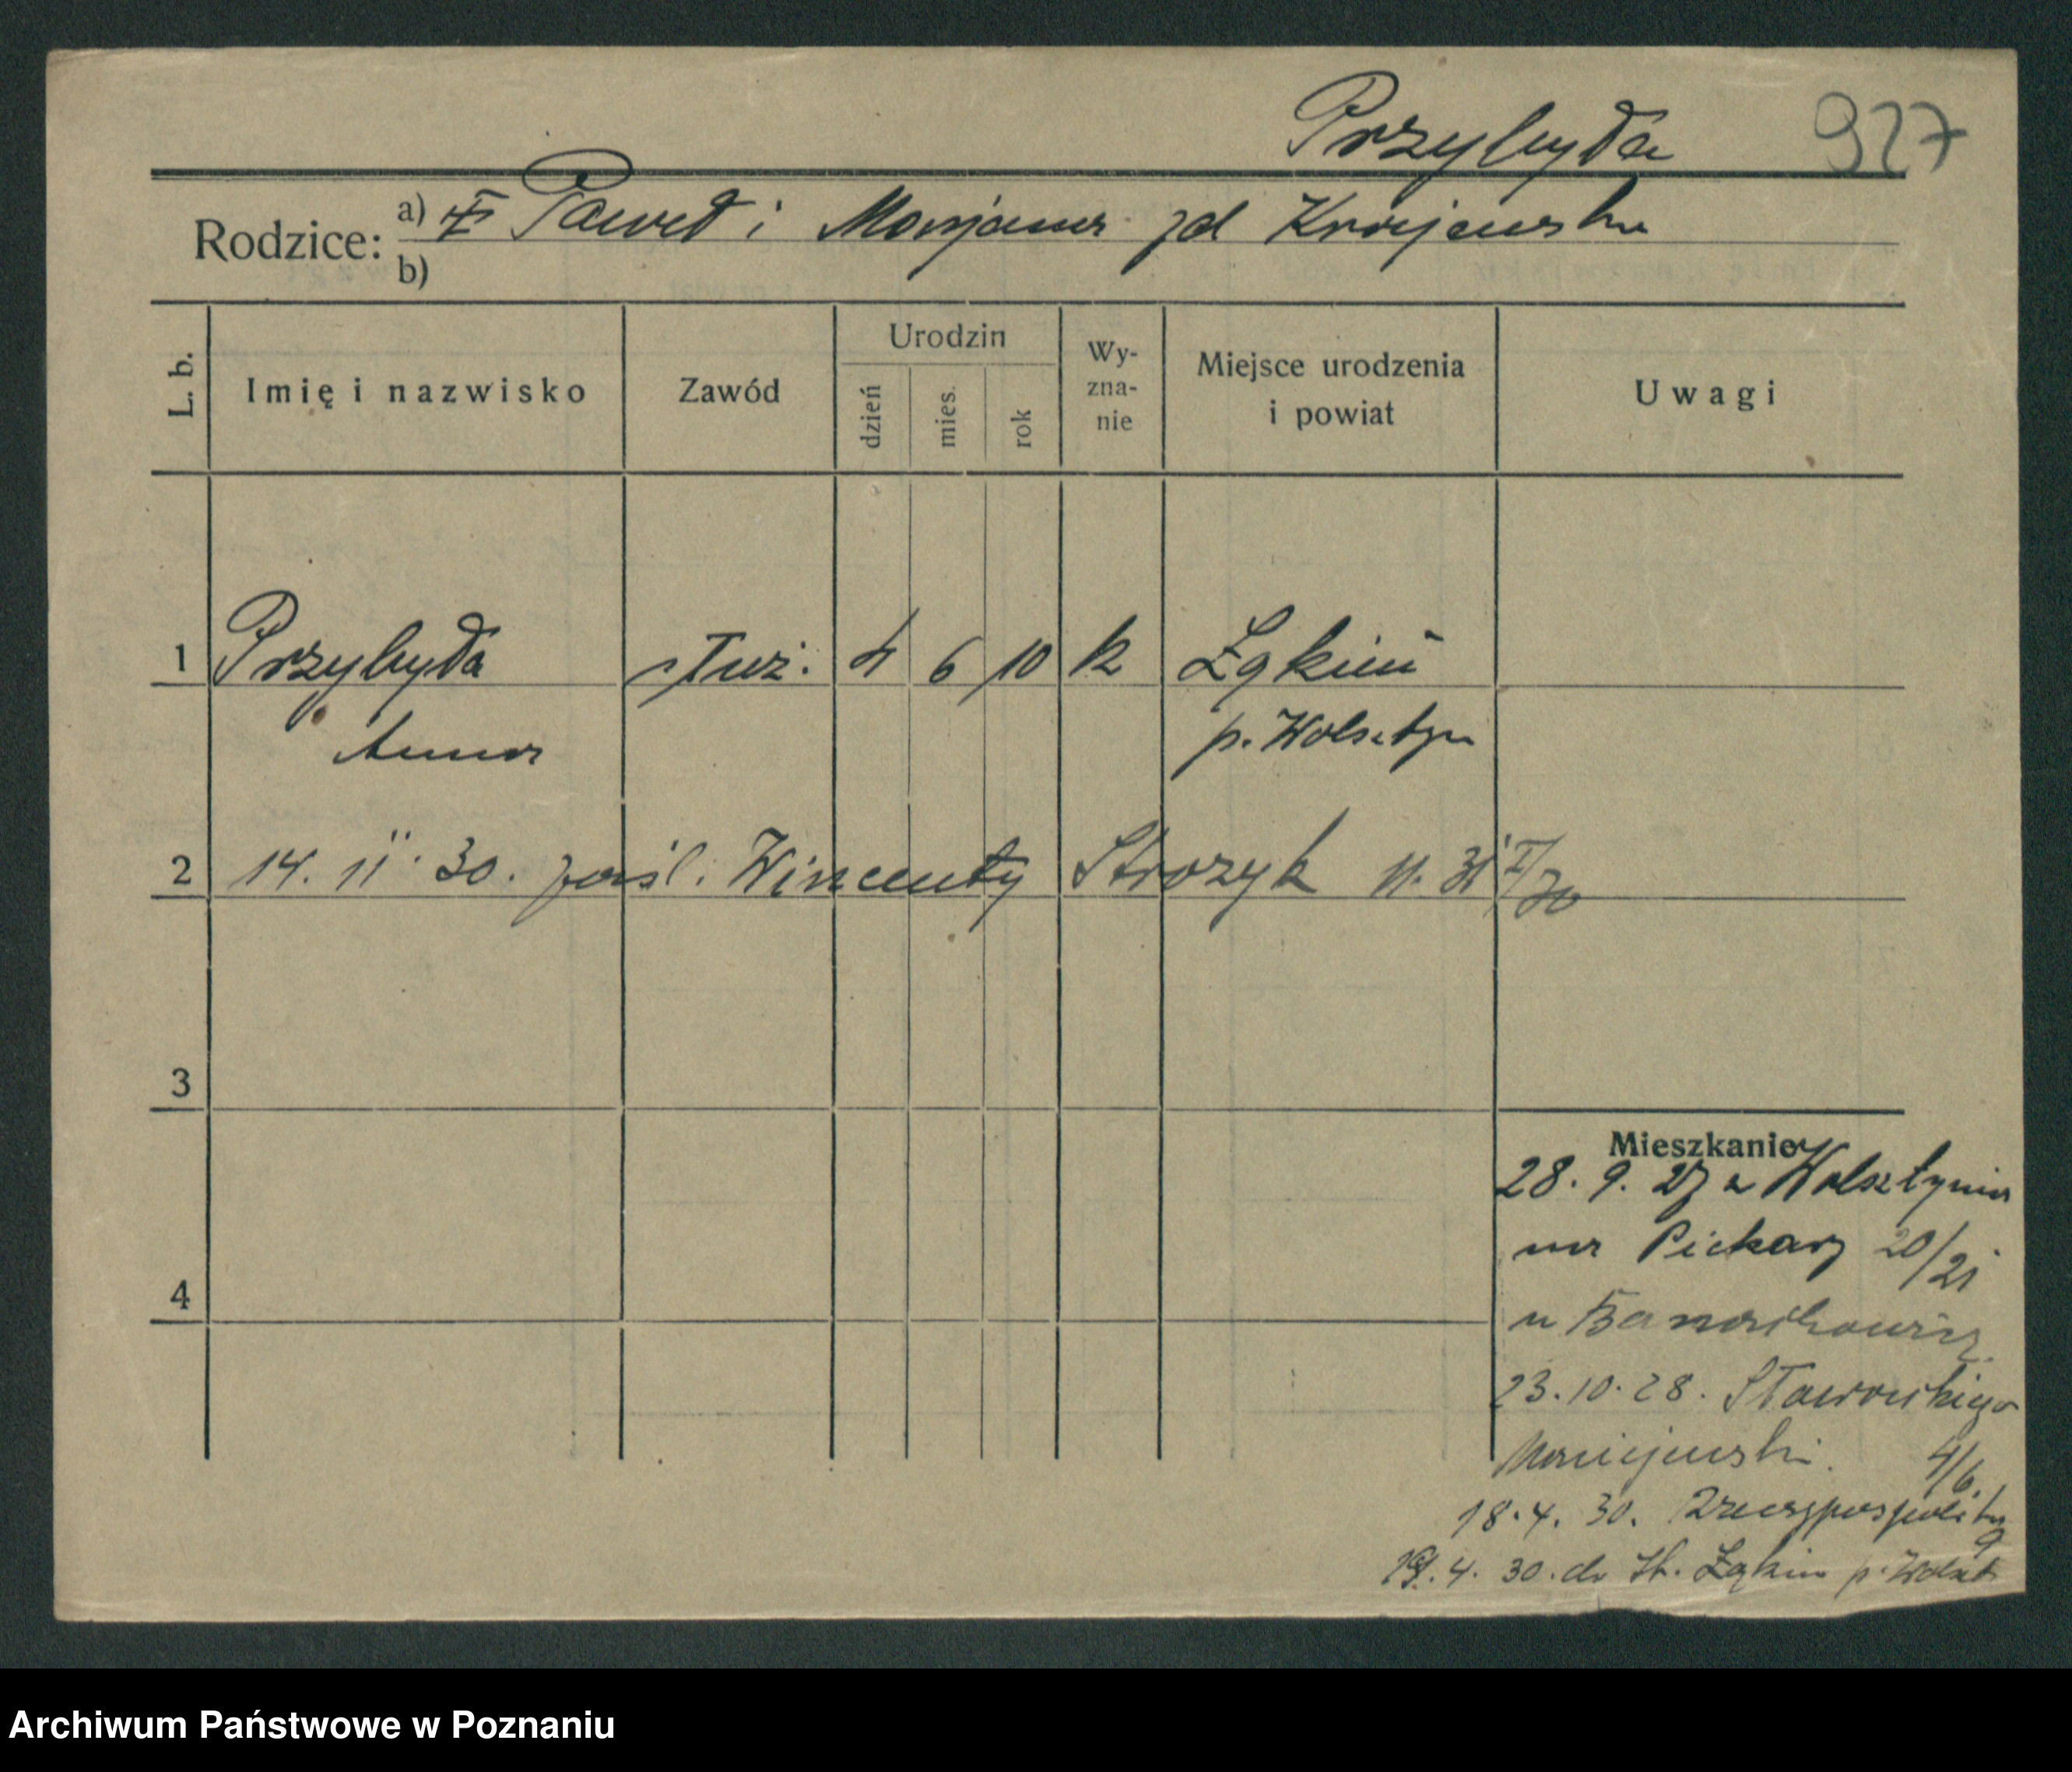 Przybyła 927
Rodzice: a) Paweł i Marjanna zd Krajewska
b)
L. b. Imię i nazwisko Zawód Urodzin dzień mies. rok Wyznanie Miejsce urodzenia i powiat Uwagi
1 Przybyła służ. 4 6 10 k Łąkiń
Anna p. Wolsztyn
2 14. 11. 30. zaśl. Wincenty Strozyk
3
4
Mieszkanie
28. 9. 27 z Wolsztyna
na Piekary 20/21
u
23. 10. 28. Stawowskiego
Maciejewski. 4/6.
18. 4. 30. Rzeczpospolitej 9
19. 4. 30. do Łąkin p. Wolszt
Archiwum Państwowe w Poznaniu